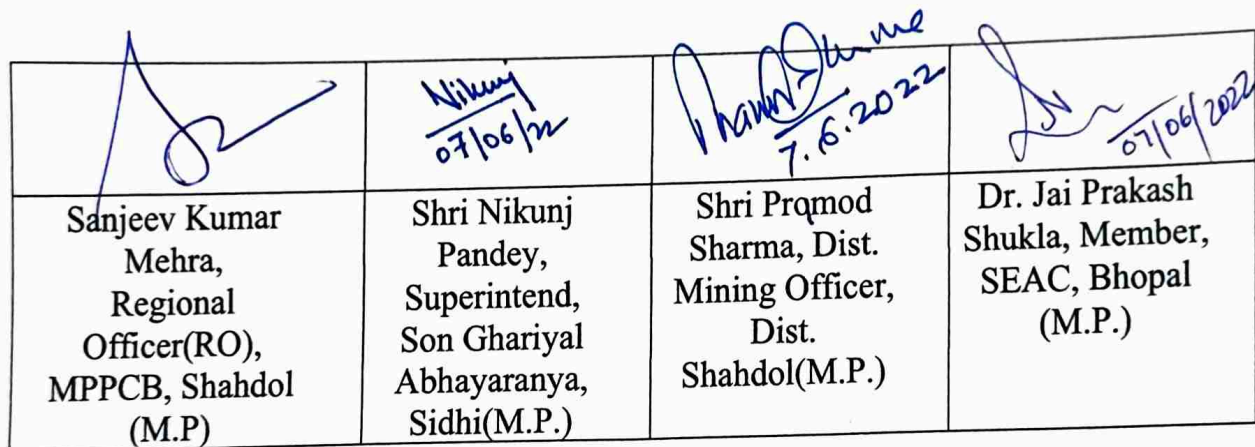 Nikunj
07/06/22
Pramod Sharma
7.6.2022
07/06/2022
Sanjeev Kumar
Mehra,
Regional
Officer(RO),
MPPCB, Shahdol
(M.P)
Shri Nikunj
Pandey,
Superintend,
Son Ghariyal
Abhayaranya,
Sidhi(M.P.)
Shri Pramod
Sharma, Dist.
Mining Officer,
Dist.
Shahdol(M.P.)
Dr. Jai Prakash
Shukla, Member,
SEAC, Bhopal
(M.P.)